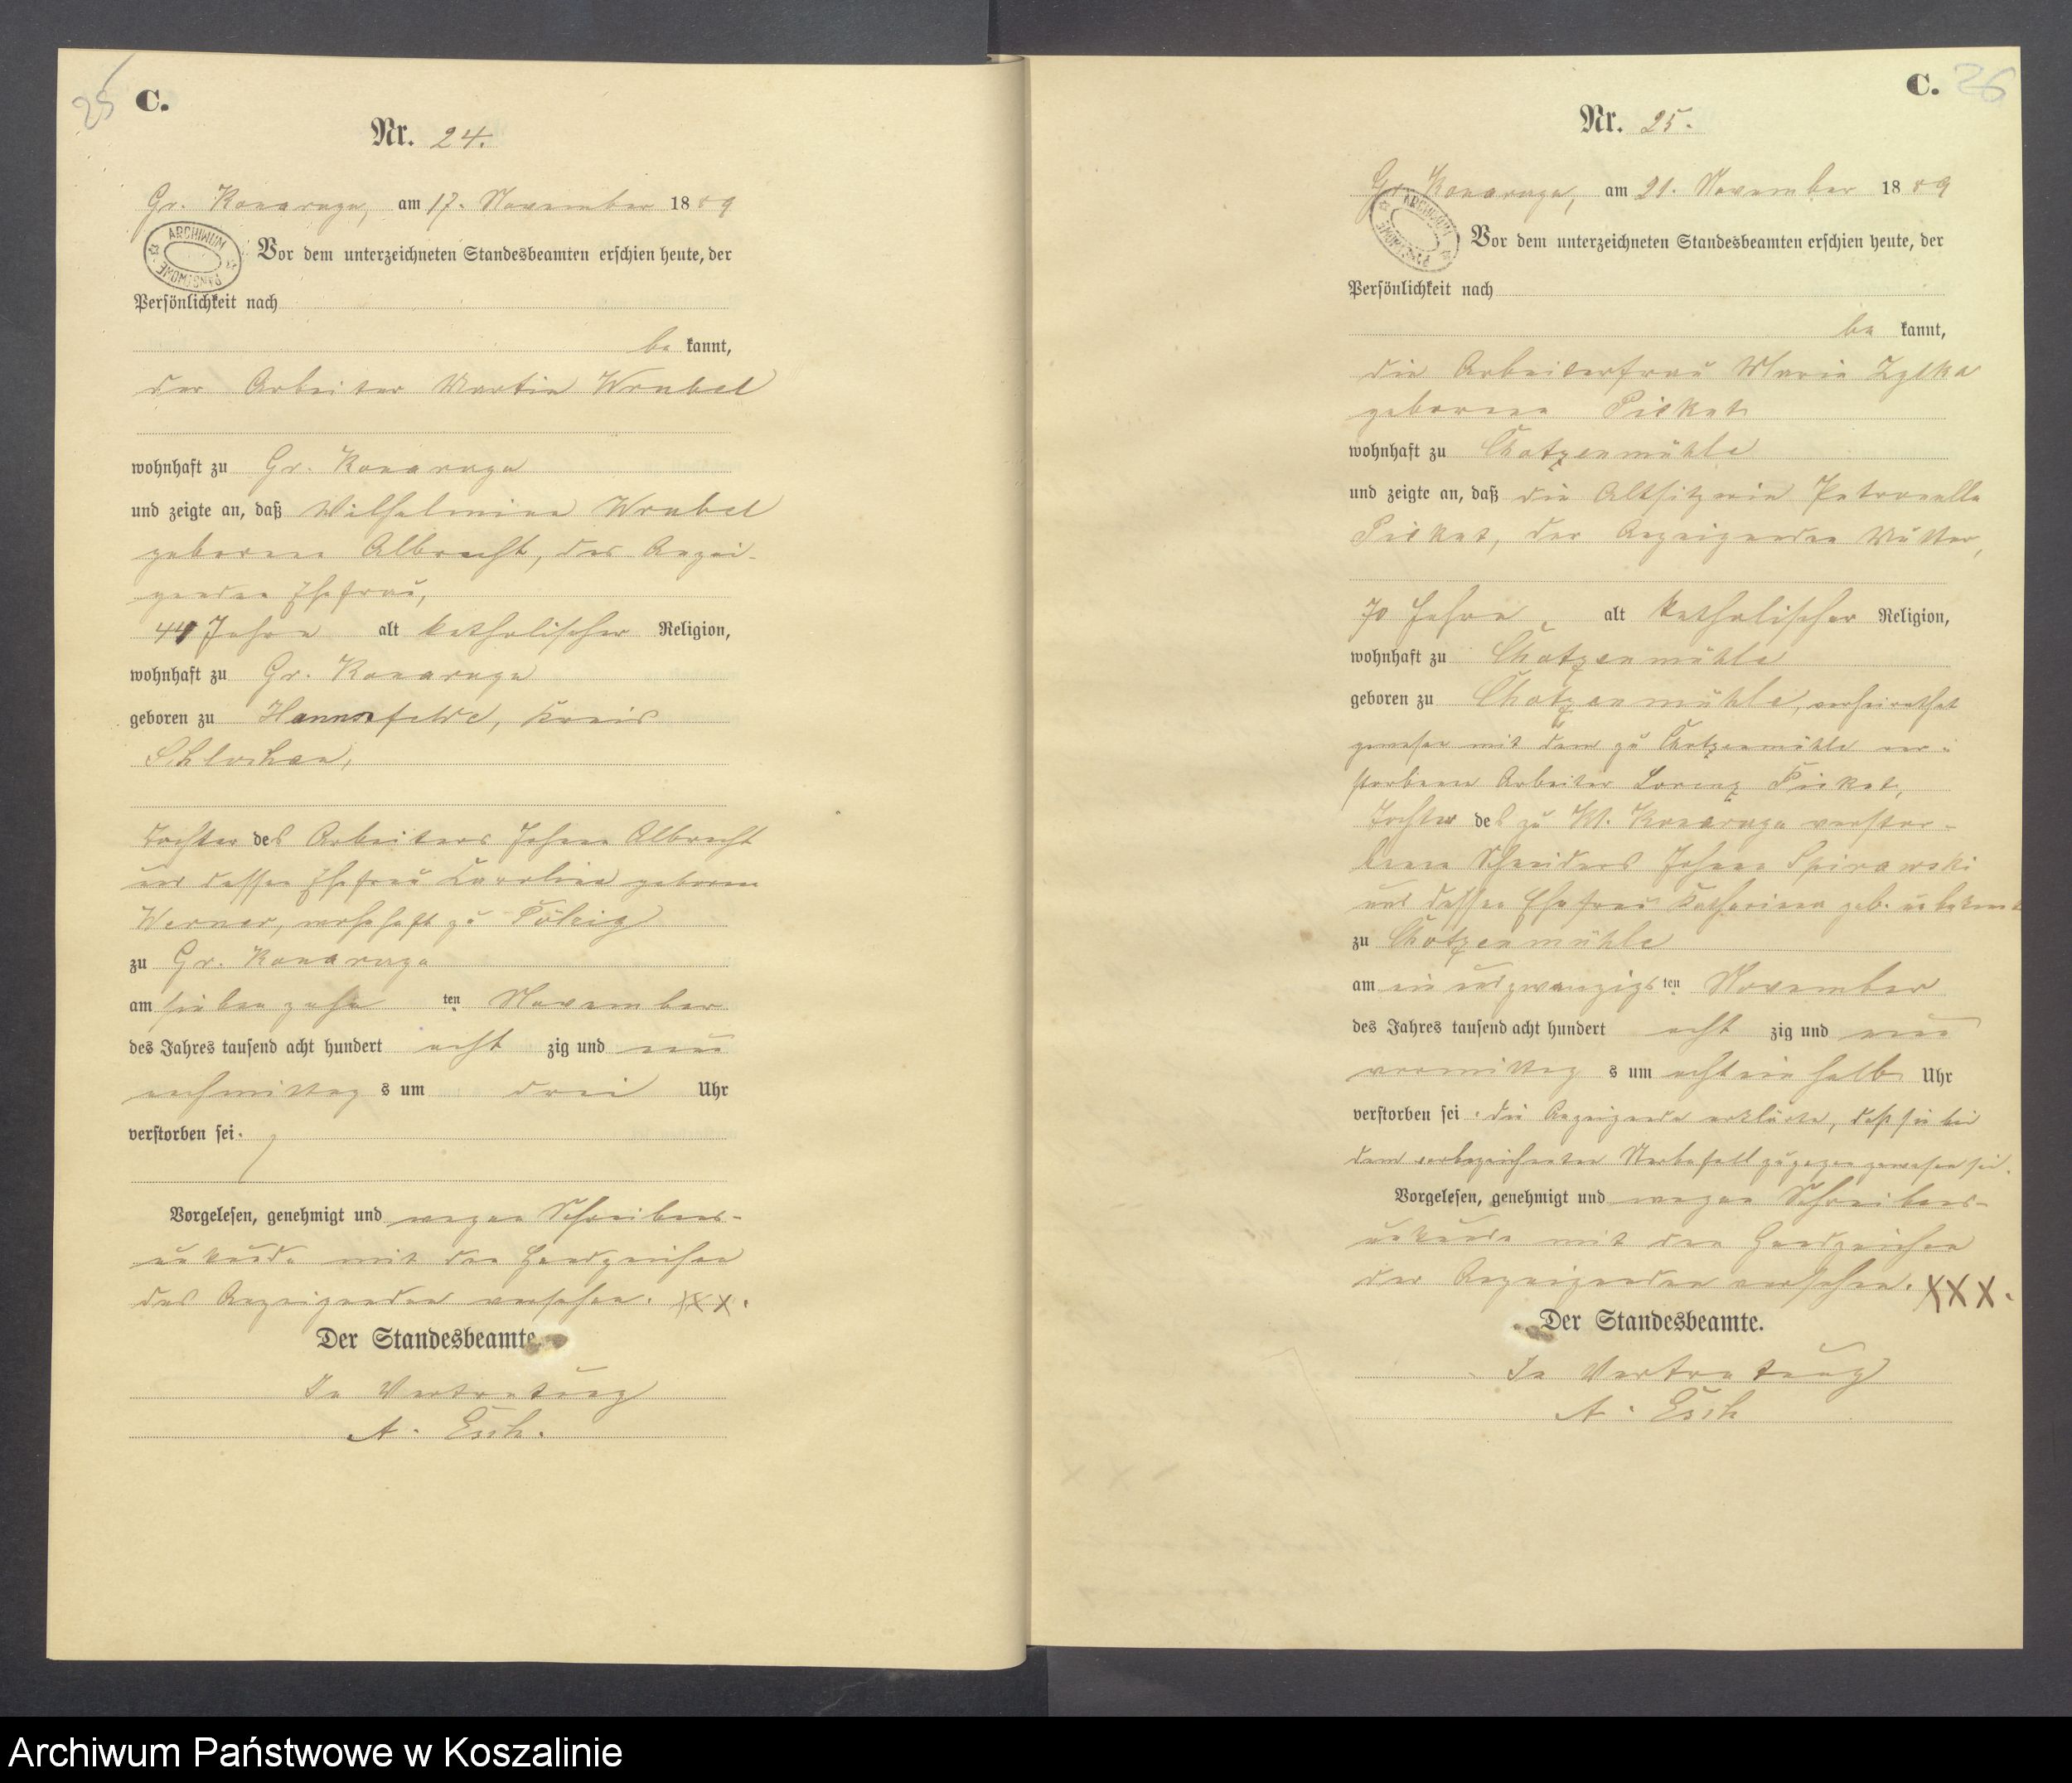 25
C.
Nr. 24.
Gr. Konarzyn, am 17. November 1889
ARCHIWUM PAŃSTWOWE
Vor dem unterzeichneten Standesbeamten erschien heute, der
Persönlichkeit nach
be kannt,
der Arbeiter Martin Wrubel
wohnhaft zu Gr. Konarzyn
und zeigte an, daß Wilhelmine Wrubel
geborene Albrecht, des Anzei-
genden Ehefrau,
44 Jahre alt katholischer Religion,
wohnhaft zu Gr. Konarzyn
geboren zu Hammerfelde, Kreis
Schlochau,
Tochter des Arbeiters Johann Albrecht
und dessen Ehefrau Karoline geborene
Werner, wohnhaft zu
zu Gr. Konarzyn
am siebenzehn ten November
des Jahres tausend acht hundert acht zig und neun
nachmittag s um drei Uhr
verstorben sei.
Vorgelesen, genehmigt und wegen Schreibens-
unkunde mit den Handzeichen
des Anzeigenden versehen. XXX.
Der Standesbeamte.
In Vertretung
A. Esch.
C. 26
Nr. 25.
Gr. Konarzyn, am 21. November 1889
ARCHIWUM PAŃSTWOWE
Vor dem unterzeichneten Standesbeamten erschien heute, der
Persönlichkeit nach
be kannt,
die Arbeiterfrau Marie Zylka
geborene Piekat
wohnhaft zu Chotzenmühle
und zeigte an, daß die Altsitzerin Petronella
Piekat, der Anzeigenden Mutter,
70 Jahre alt katholischer Religion,
wohnhaft zu Chotzenmühle
geboren zu Chotzenmühle, verheirathet
gewesen mit dem zu Chotzenmühle ver-
storbenen Arbeiter Lorenz Piekat,
Tochter des zu Kl. Konarzyn verstor-
benen Schneiders Johann Spirawski
und dessen Ehefrau Katharina geb. unbekannt
zu Chotzenmühle
am ein und zwanzigs ten November
des Jahres tausend acht hundert acht zig und neun
vormittag s um achteinhalb Uhr
verstorben sei. die Anzeigende erklärte, daß sie bei
dem vorbezeichneten Sterbefall zugegen gewesen sei.
Vorgelesen, genehmigt und wegen Schreibens-
unkunde mit den Handzeichen
der Anzeigenden versehen. XXX.
Der Standesbeamte.
In Vertretung
A. Esch
Archiwum Państwowe w Koszalinie